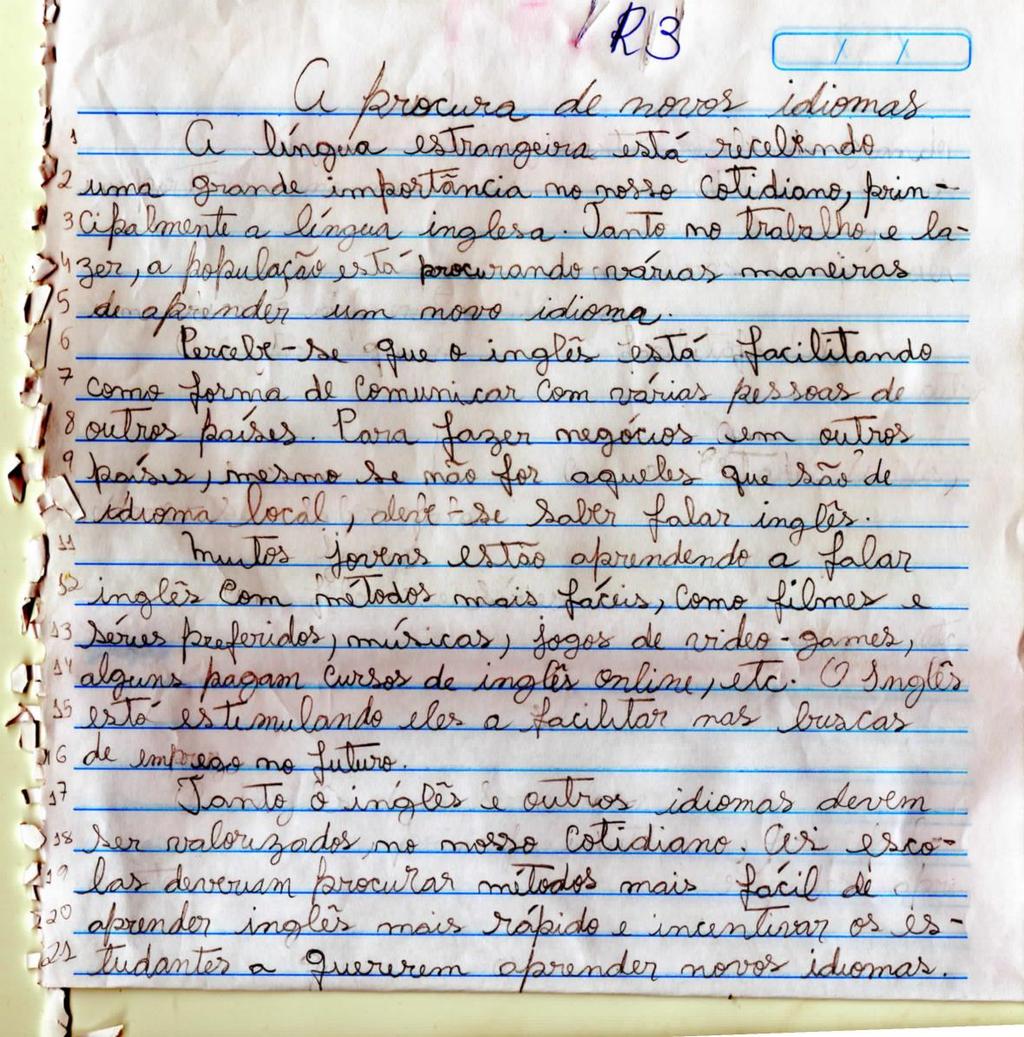 R3
A procura de novos idiomas
1 A língua estrangeira está recebendo
2 uma grande importância no nosso cotidiano, prin-
3 cipalmente a língua inglesa. Tanto no trabalho e la-
4 zer, a população está procurando várias maneiras
5 de aprender um novo idioma.
6 Percebe-se que o inglês está facilitando
7 como forma de comunicar com várias pessoas de
8 outros países. Para fazer negócios em outros
9 países, mesmo se não for aqueles que são de
idioma local, deve-se saber falar inglês.
11 Muitos jovens estão aprendendo a falar
12 inglês com métodos mais fáceis, como filmes e
13 séries preferidos, músicas, jogos de video-games,
14 alguns pagam cursos de inglês online, etc. O Inglês
15 está estimulando eles a facilitar nas buscas
16 de emprego no futuro.
17 Tanto o inglês e outros idiomas devem
18 ser valorizados no nosso cotidiano. As esco-
19 las deveriam procurar métodos mais fácil de
20 aprender inglês mais rápido e incentivar os es-
21 tudantes a quererem aprender novos idiomas.